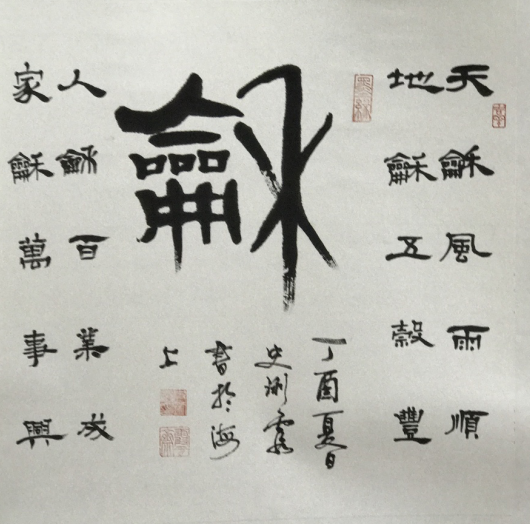 天龢風雨順
地龢五穀豐
龢
人龢百業成
家龢萬事興
丁酉夏日
史淵露
書於海
上